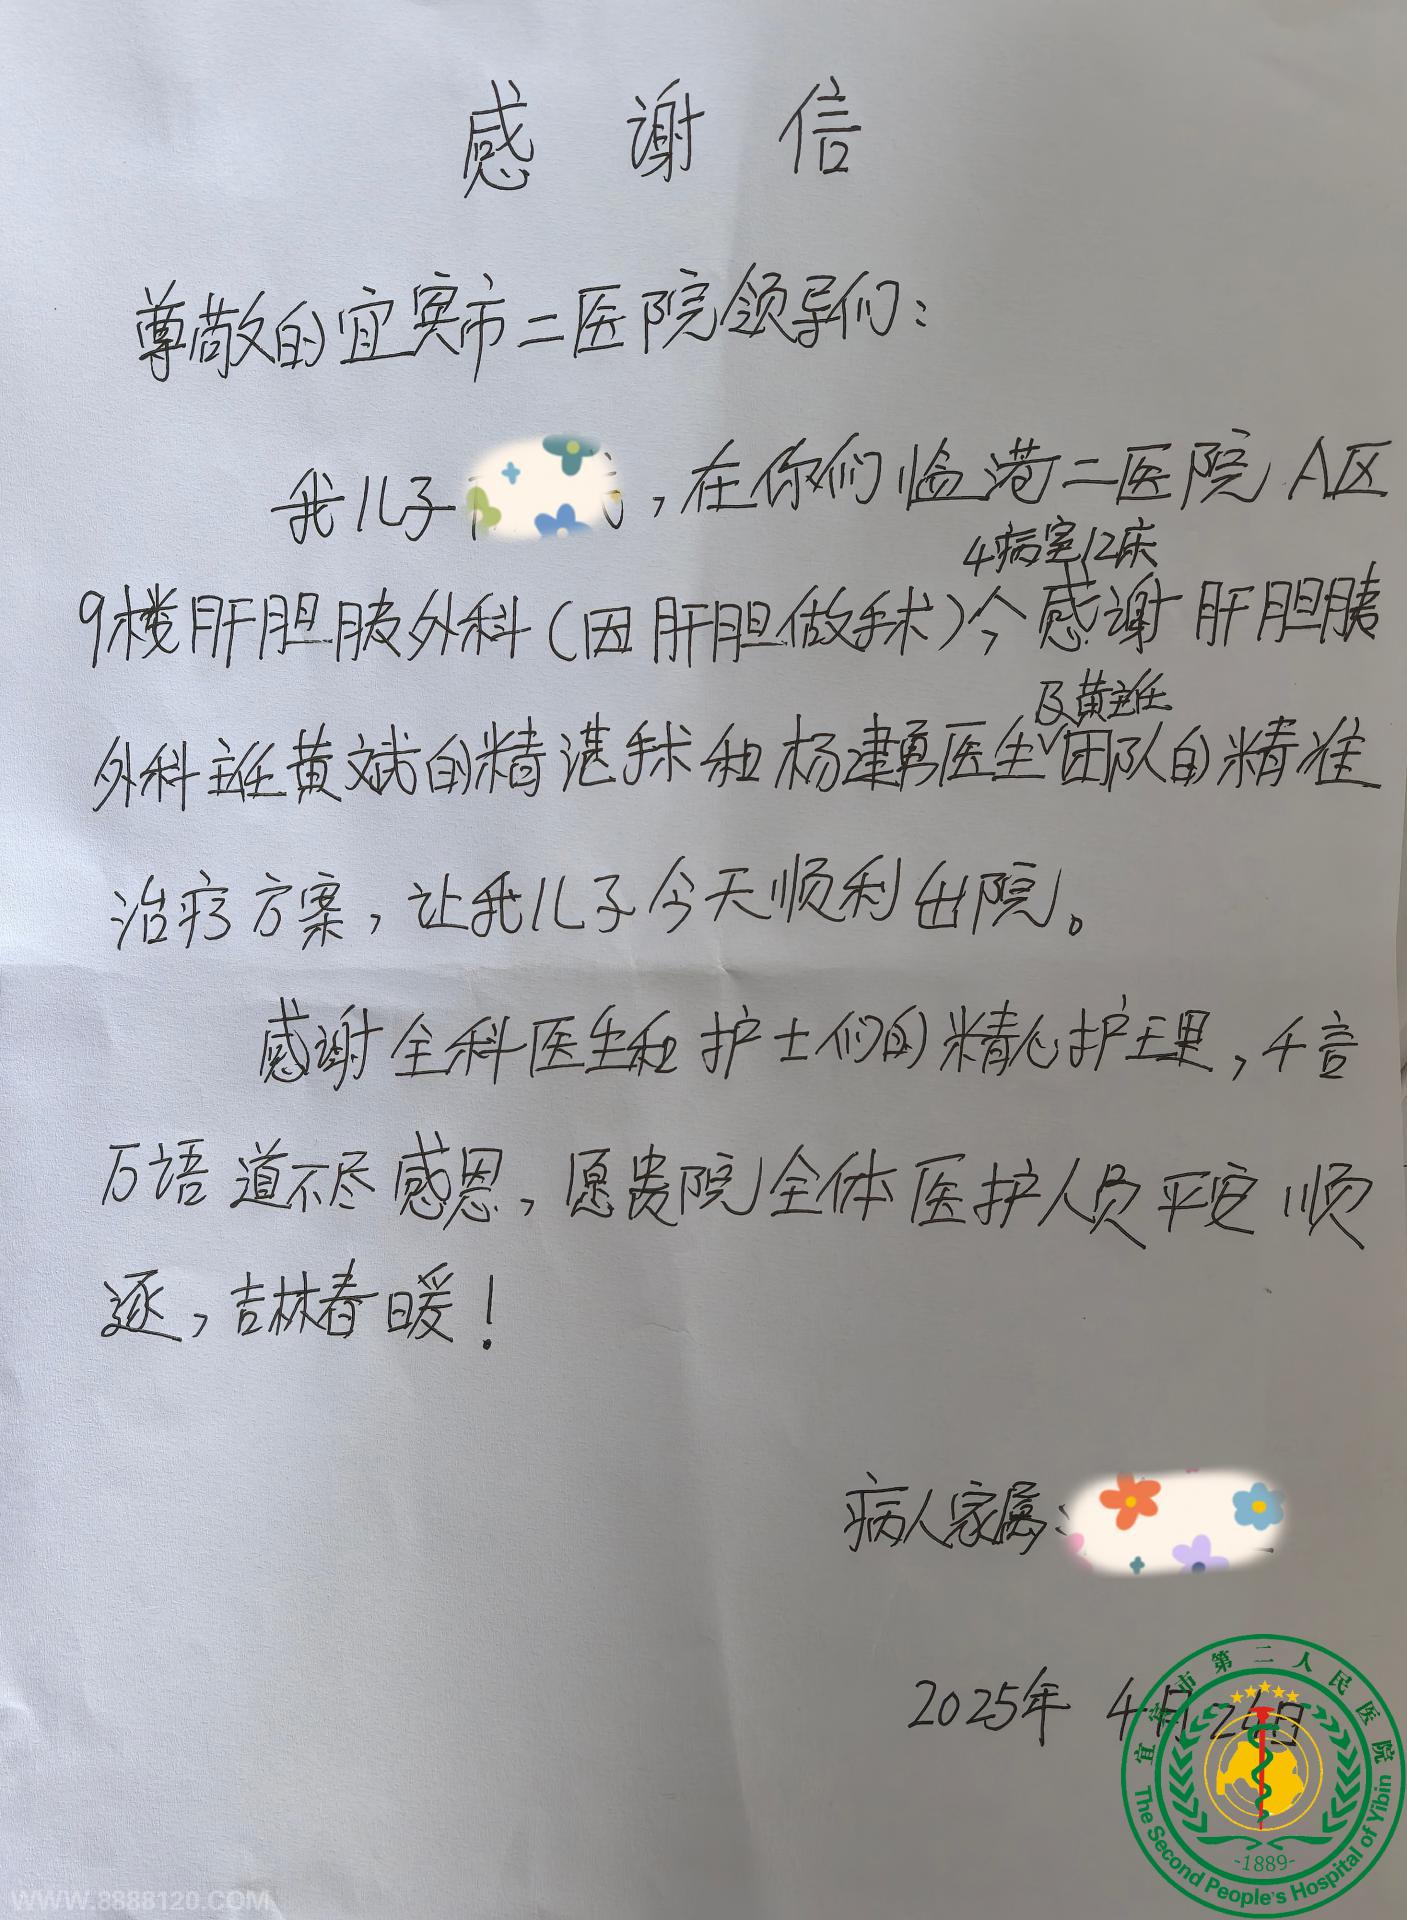 感谢信
尊敬的宜宾市二医院领导们：
我儿子，在你们临港二医院A区
4病室12床
9楼肝胆胰外科（因肝胆做手术），今感谢肝胆胰
及黄主任
外科主任黄斌的精湛手术和杨建勇医生团队的精准
治疗方案，让我儿子今天顺利出院。
感谢全科医生和护士们的精心护理，千言
万语道不尽感恩，愿贵院全体医护人员平安顺
遂，吉林春暖！
病人家属：
2025年4月24日
宜宾市第二人民医院
The Second People's Hospital of Yibin
-1889-
WWW.8888120.COM